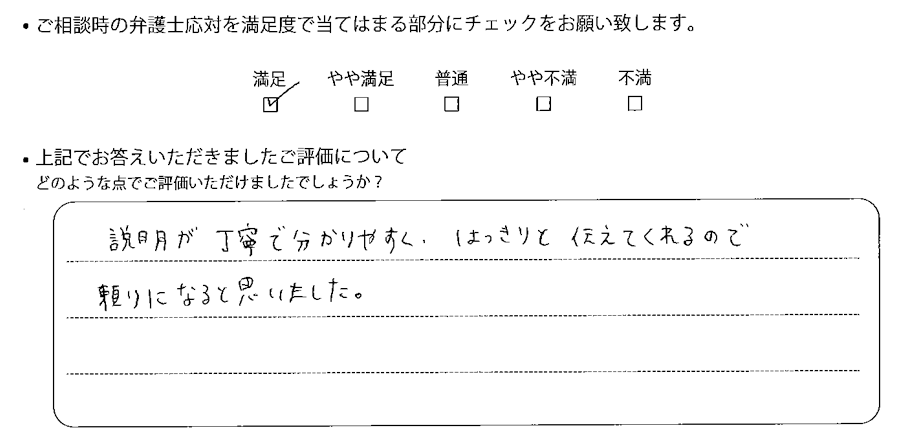 ・ご相談時の弁護士応対を満足度で当てはまる部分にチェックをお願い致します。
満足 やや満足 普通 やや不満 不満
☑ □ □ □ □
・上記でお答えいただきましたご評価について
どのような点でご評価いただけましたでしょうか？
説明が丁寧で分かりやすく、はっきりと伝えてくれるので
頼りになると思いました。